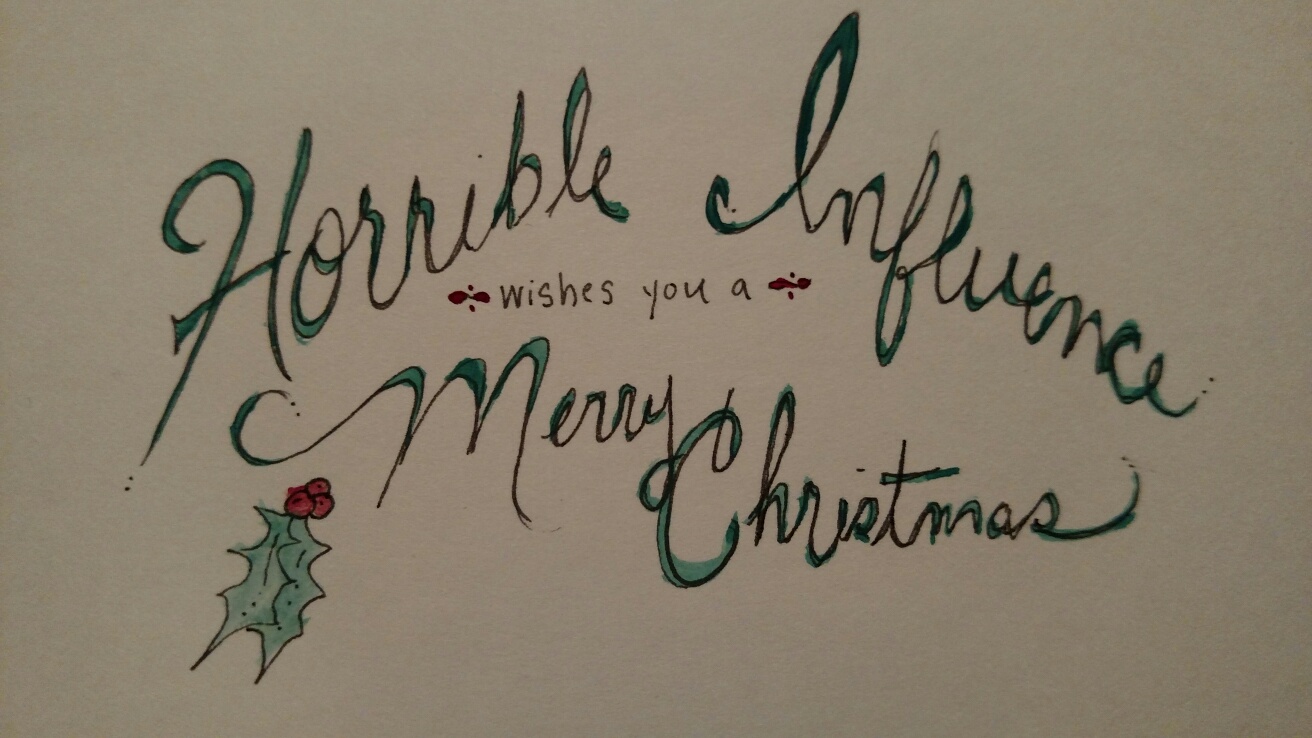 Horrible Influence
wishes you a
Merry
Christmas